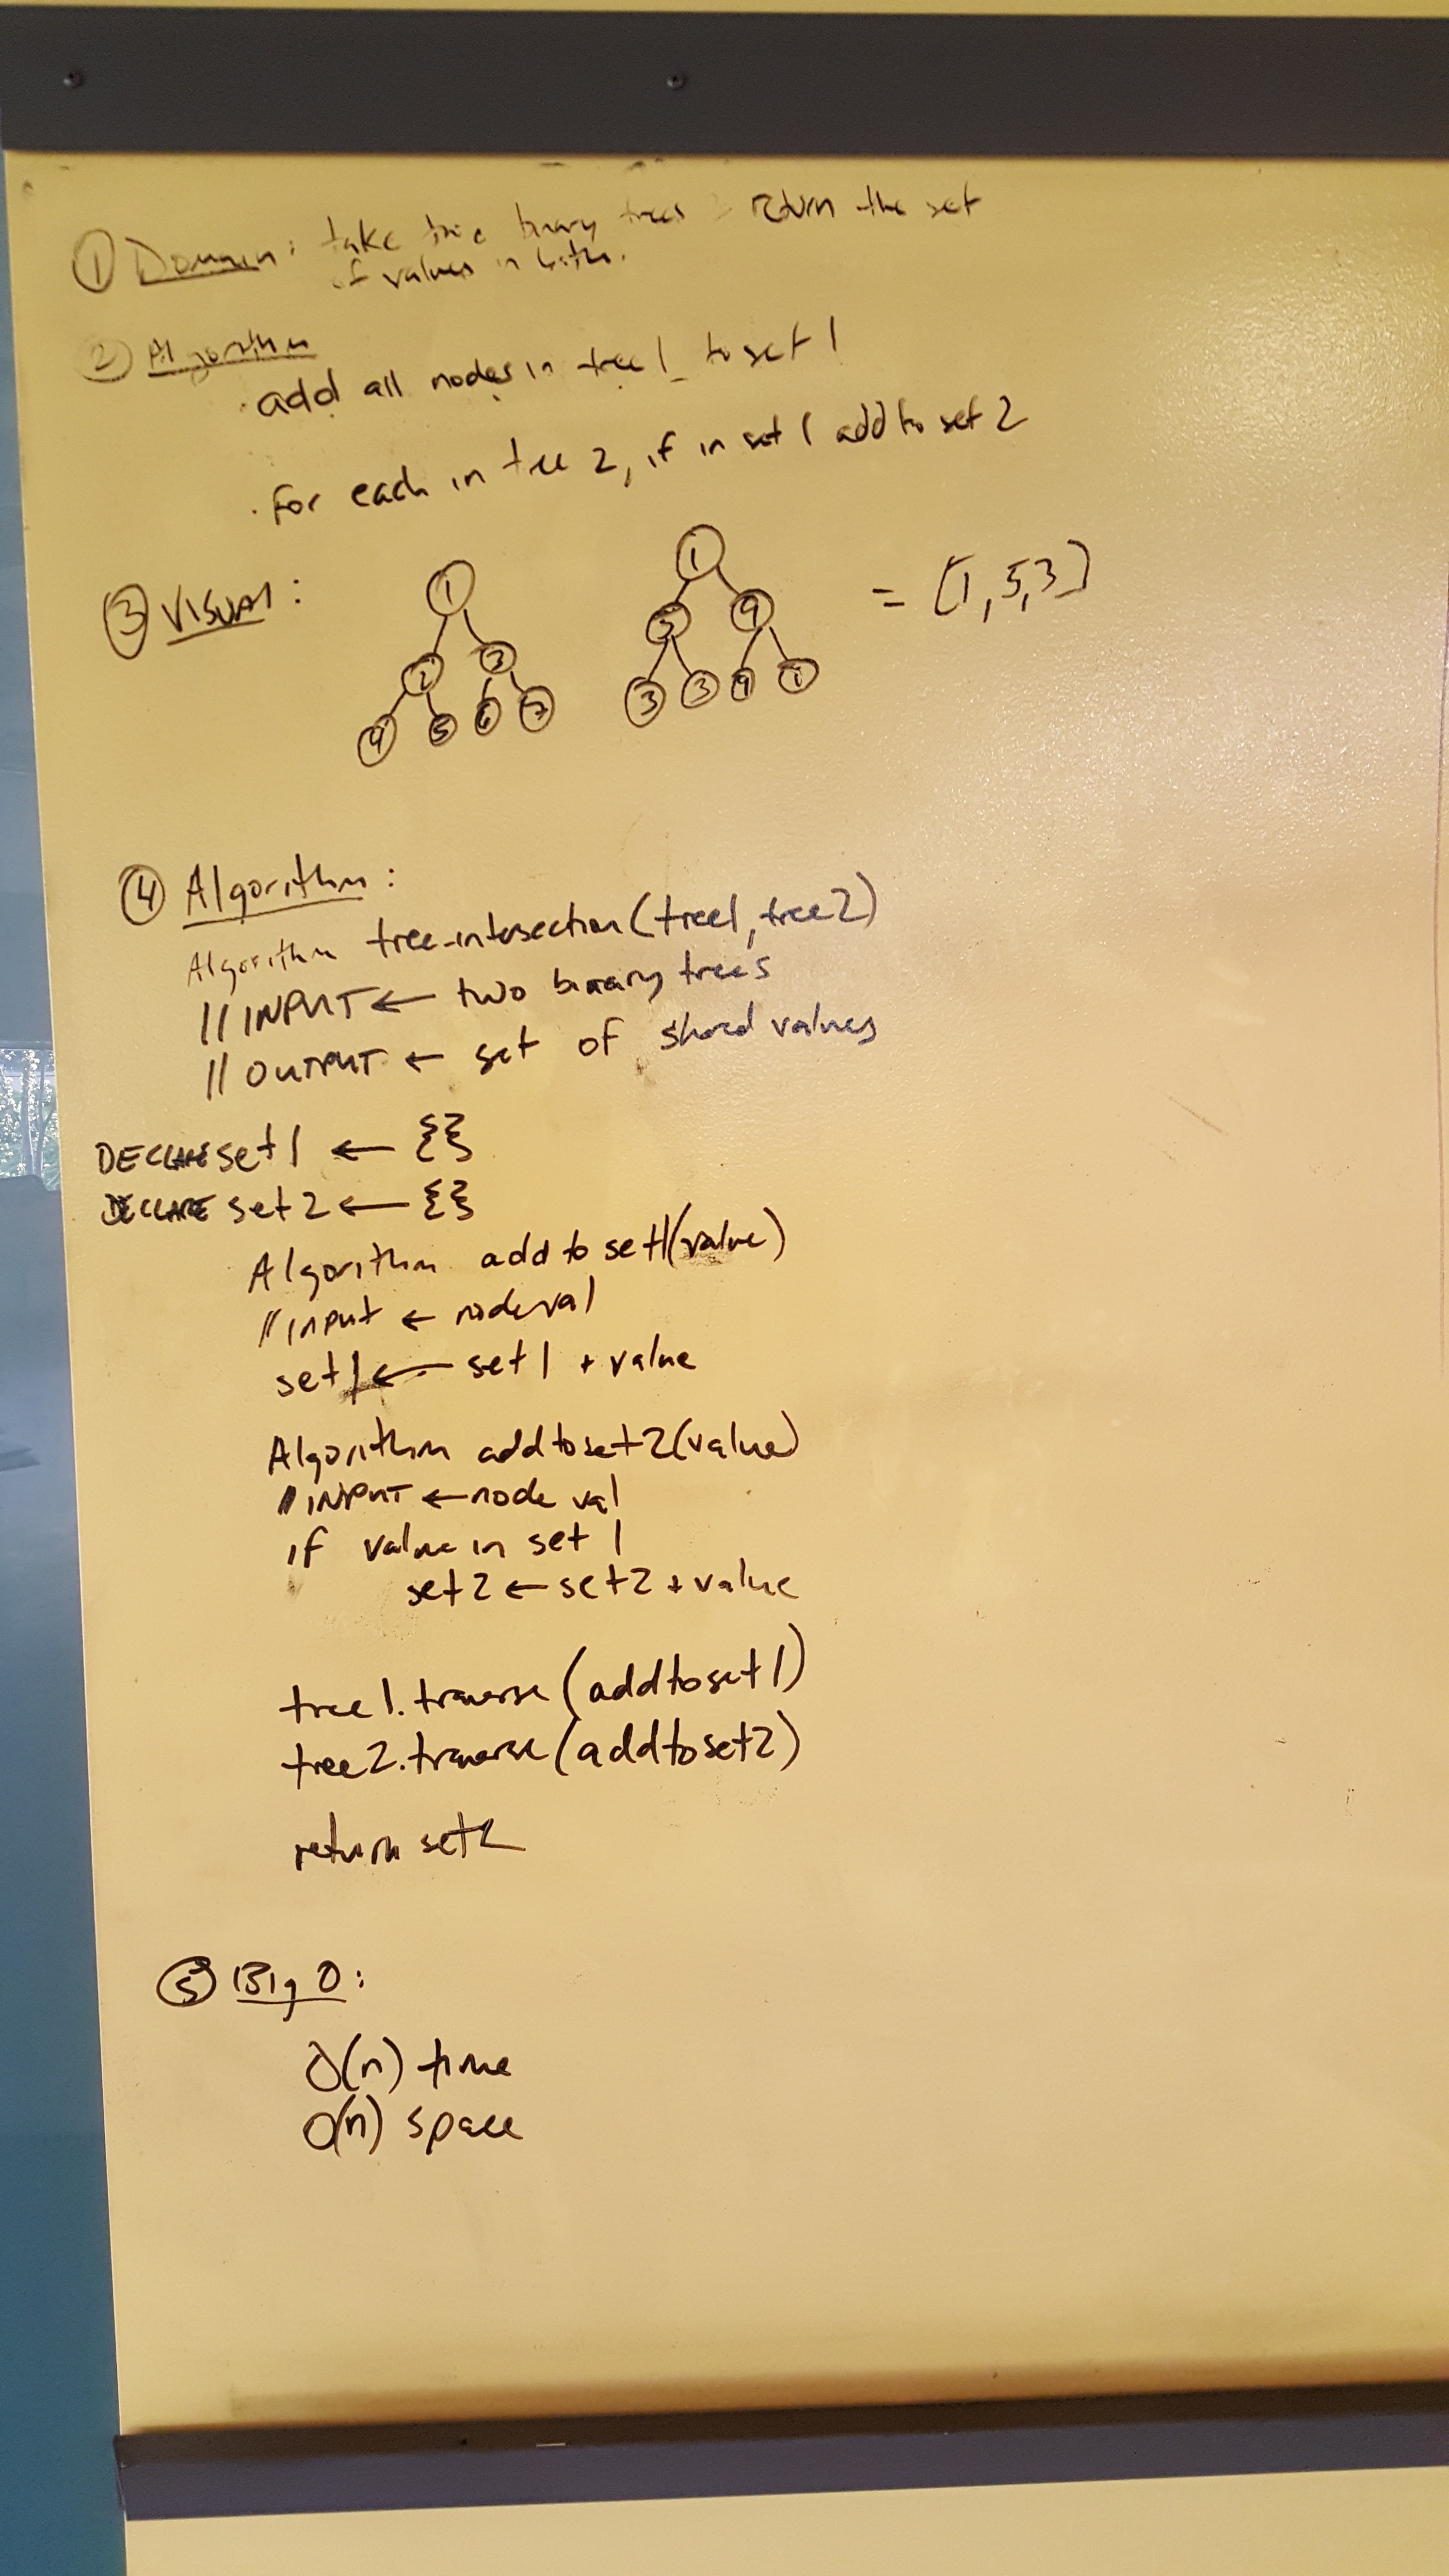 ① Domain: take two binary trees & return the set
of values in both.
② Algorithm
· add all nodes in tree 1 to set 1
· for each in tree 2, if in set 1 add to set 2
③ VISUAL:
1
2 3
4 5 6 7
1
5 9
3 3 9 1
= [1,5,3]
④ Algorithm:
Algorithm tree-intersection(tree1, tree2)
// INPUT ← two binary trees
// OUTPUT ← set of shared values
DECLARE set1 ← {}
DECLARE set2 ← {}
Algorithm add to set1(value)
// input ← node val
set1 ← set1 + value
Algorithm addtoset2(value)
// INPUT ← node val
if value in set 1
set2 ← set2 + value
tree1.traverse(addtoset1)
tree2.traverse(addtoset2)
return set2
⑤ Big O:
O(n) time
O(n) space